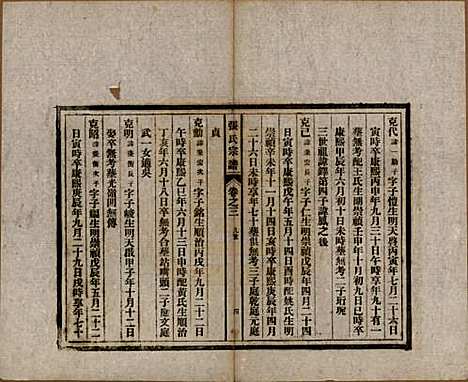 克代 諱一勳子 字子愷生明天啓丙寅年七月二十六日
寅時卒康熙丙申年九月三十日午時享年九十有一
配王氏生明崇禎壬申年十月初九日巳時卒
康熙甲辰年六月初十日未時葬無考二子珩琬
三世祖諱鐸第四子諱鳳之後
克己 字子仁生明崇禎戊辰年四月二十四
日 時卒康熙戊午年五月十四日酉時配姚氏生明
崇禎辛未年十一月十四日亥時卒康熙庚辰年四月
二十六日亥時享年七十葬俱無考三子庭乾庭元庭
貞
張氏宗譜
卷之三
四
克勳 字子銘生順治丙戌年九月二十二日
午時卒康熙乙巳年六月十三日申時配黃氏生順治
丁亥年六月十八日 時卒無考合葬 二子 文庭
武一女適吳
克明 字子峻生明天啟甲子年十月十二日
娶卒無考葬光嶺 無傳
克昭 字子繼生明崇禎戊辰年五月二十二
日寅時卒康熙庚辰年九月二十九日戌時享年七十